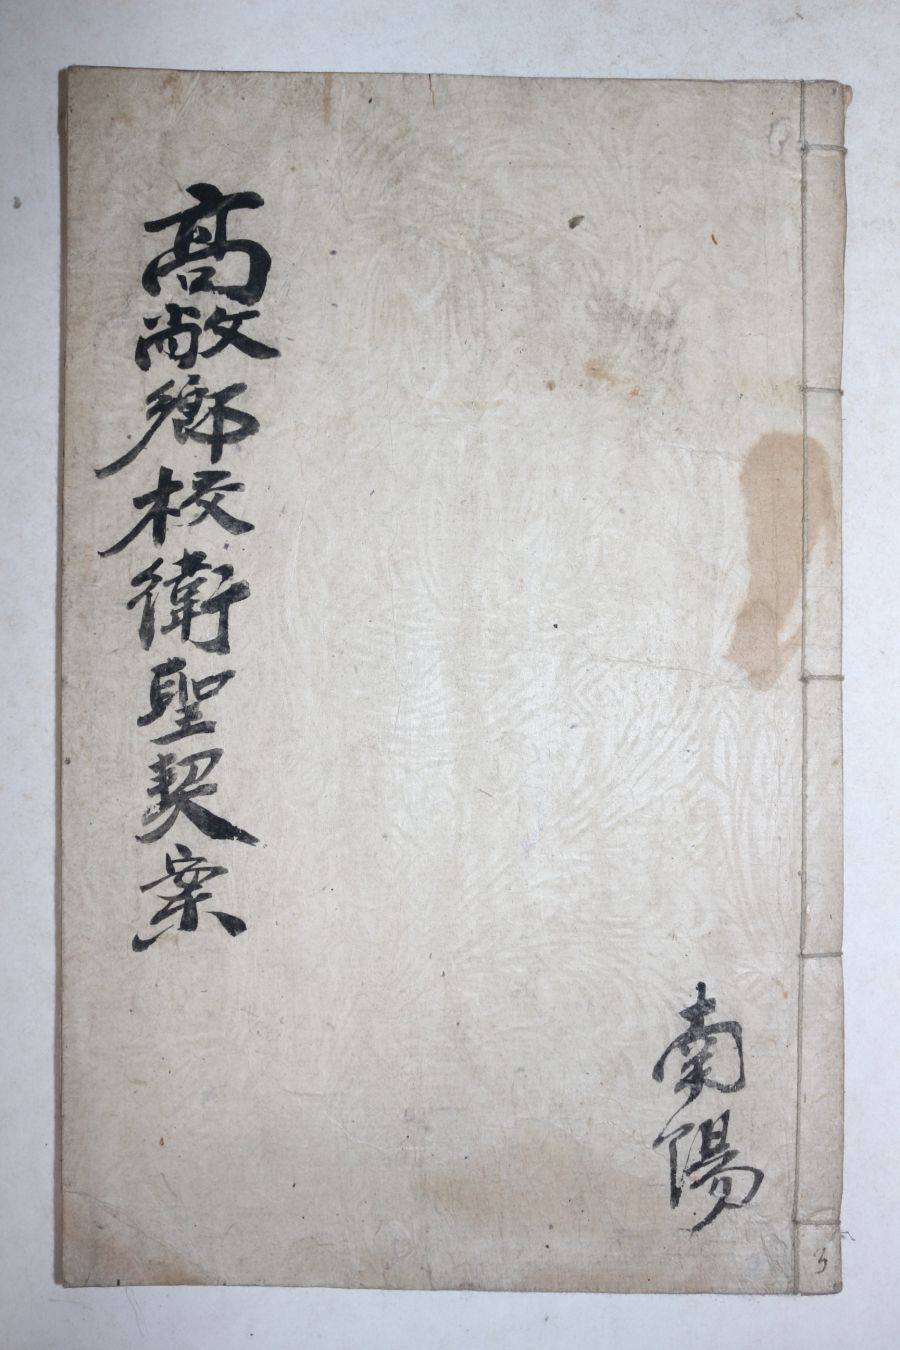 高敞鄉校衛聖契案
南陽
3